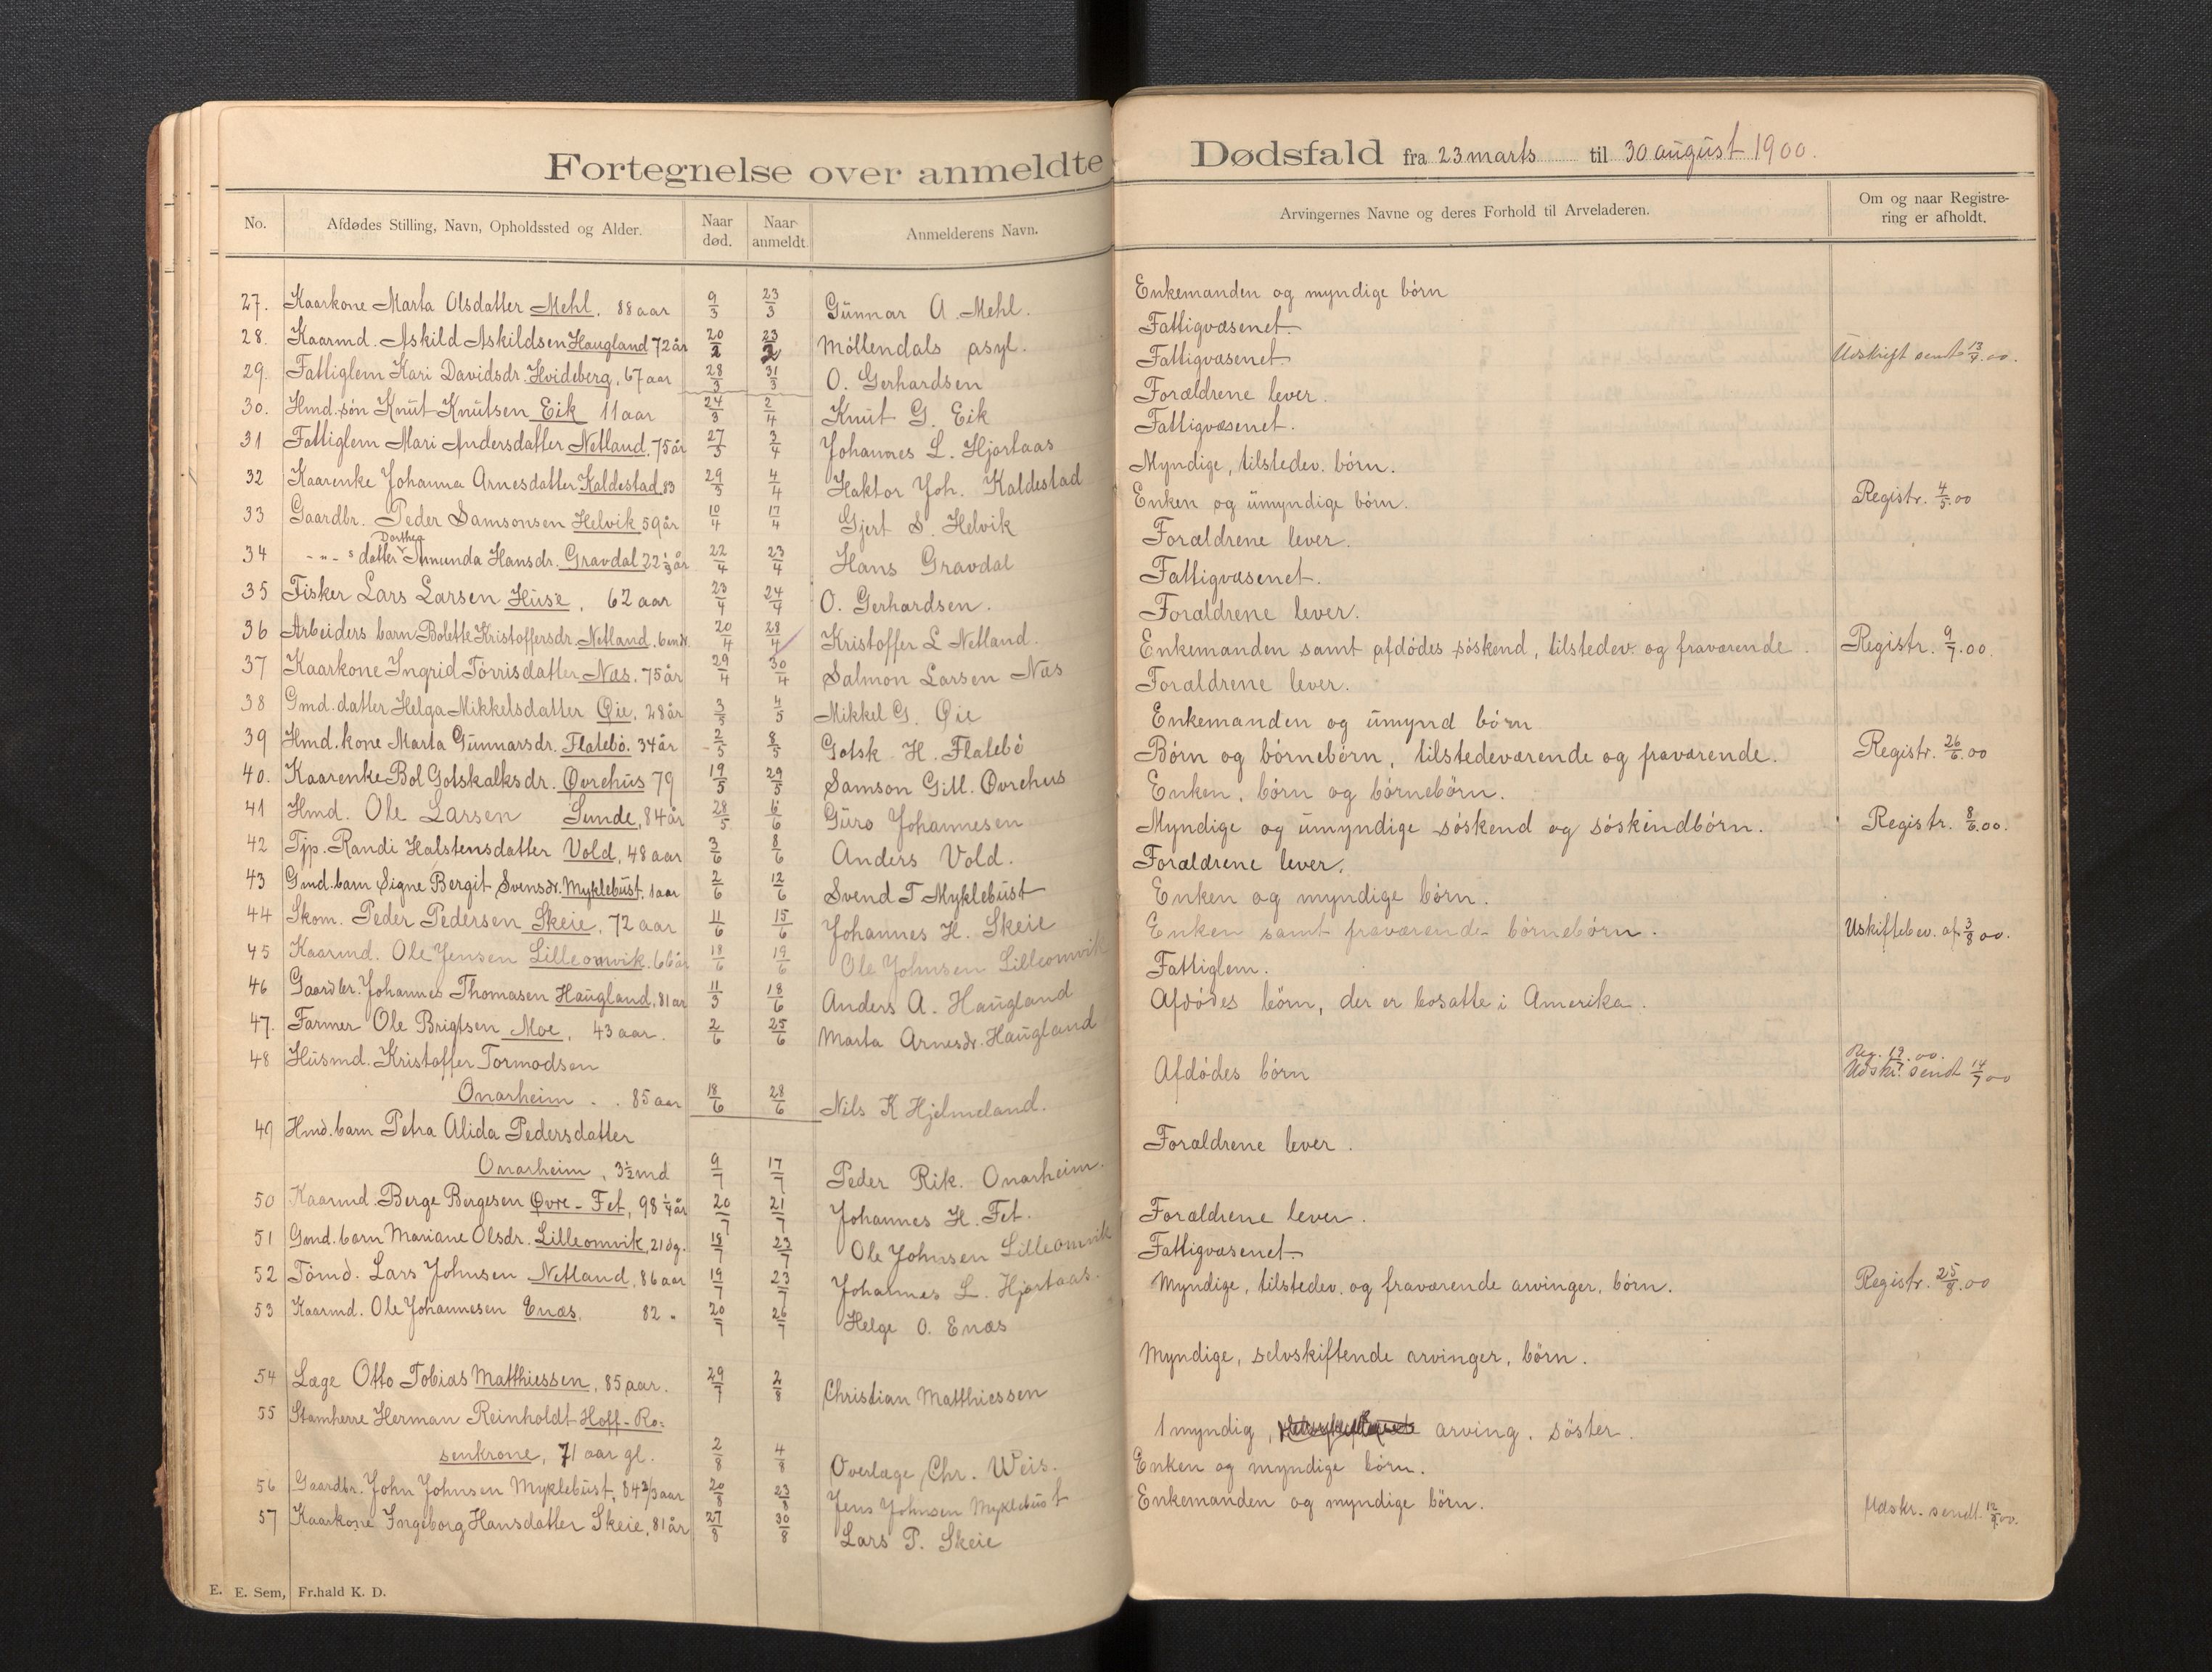 Fortegnelse over anmeldte Dødsfald fra 23 marts til 30 august 1900.
No. Afdødes Stilling, Navn, Opholdssted og Alder. Naar død. Naar anmeldt. Anmelderens Navn. Arvingernes Navne og deres Forhold til Arveladeren. Om og naar Registrering er afholdt.
27. Kaarkone Marta Olsdatter Mehl. 88 aar 9/3 23/3 Gunnar A. Mehl. Enkemanden og myndige börn
28. Kaarmd. Askild Askildsen Haugland 72 år 20/2 23/2 Möllendals asyl. Fattigvæsenet.
29. Fattiglem Kari Davidsdr. Hvideberg, 67 aar 28/3 31/3 O. Gerhardsen Fattigvæsenet Udskrift sendt 13/7.00.
30. Hmd. søn Knut Knutsen Eik 11 aar 24/3 2/4 Knut G. Eik Forældrene lever.
31 Fattiglem Mari Andersdatter Netland, 75 år 27/3 3/4 Johannes L. Hjortaas Fattigvæsenet.
32 Kaarenke Johanna Arnesdatter Kaldestad 83 29/3 4/4 Haktor Joh. Kaldestad Myndige, tilstedev. börn.
33 Gaardbr. Peder Samsonsen Helvik 59 år 10/4 17/4 Gjert S. Helvik Enken og umyndige börn. Registr. 4/5.00
34 - " - s datter Dorthea Amunda Hansdr. Gravdal 22 1/3 år 22/4 23/4 Hans Gravdal Forældrene lever.
35 Fisker Lars Larsen Huse, 62 aar 23/4 24/4 O. Gerhardsen. Fattigvæsenet.
36 Arbeiders barn Bolette Kristoffersdr. Netland. 6 mdr. 20/4 28/4 Kristoffer L Netland. Forældrene lever.
37 Kaarkone Ingrid Torrisdatter Næs. 75 år 29/4 30/4 Salmon Larsen Næs Enkemanden samt afdödes söskend, tilstedev. og fraværende. Registr. 9/7.00.
38 Gmd. datter Helga Mikkelsdatter Øie, 28 år 3/5 4/5 Mikkel G. Øie Forældrene lever.
39 Hmd. kone Marta Gunnarsdr. Flatebö. 34 år 2/5 8/5 Gotsk. H. Flatebö Enkemanden og umynd börn
40. Kaarenke Bol Gotskalksdr. Øvrehus 79 19/5 29/5 Samson Gitl. Øvrehus Börn og börnebörn, tilstedeværende og fraværende. Registr. 26/6.00
41 Hmd. Ole Larsen Sunde, 84 år 28/5 6/6 Guro Johannesen Enken, börn og börnebörn.
42 Tjp. Randi Halstensdatter Vold, 48 aar 3/6 8/6 Anders Vold. Myndige og umyndige söskend og söskindbörn. Registr. 8/6.00.
43 Gmd. barn Signe Bergit Svensdr. Myklebust. 1 aar 2/6 12/6 Svend T Myklebust Forældrene lever.
44 Skom. Peder Pedersen Skeie, 72 aar 11/6 15/6 Johannes H. Skeie Enken og myndige börn.
45 Kaarmd. Ole Jensen Lilleomvik. 66 år 18/6 19/6 Ole Johnsen Lilleomvik Enken samt fraværende börnebörn. Uskiftebev. af 3/8 00.
46 Gaardbr. Johannes Thomasen Haugland, 81 ar 11/3 18/6 Anders A. Haugland Fattiglem.
47. Farmer Ole Brigtsen Moe, 43 aar. 2/6 25/6 Marta Arnesdr. Haugland Afdödes börn, der er bosatte i Amerika.
48 Husmd. Kristoffer Tormodsen
Onarheim . . 85 aar 18/6 28/6 Nils K Hjelmeland. Afdödes börn Reg. 19/7.00. Udskr. sendt 14/7 00
49 Hmd. barn Petra Alida Pedersdatter
Onarheim, 3 1/2 md 9/7 17/7 Peder Rik. Onarheim. Forældrene lever.
50 Kaarmd. Berge Bergesen Øvre-Fet, 98 1/4 år 20/7 21/7 Johannes H. Fet.
51 Gmd. barn Mariane Olsdr. Lilleomvik, 21 dg. 18/7 23/7 Ole Johnsen Lilleomvik Forældrene lever.
52 Tömd. Lars Johnsen Netland, 86 aar 19/7 23/7 Johannes L. Hjortaas. Fattigvæsenet
53 Kaarmd. Ole Johannesen Enæs. 82 " 20/7 26/7 Helge O. Enæs Myndige, tilstedev. og fraværende arvinger, börn. Registr. 25/8.00
54 Læge Otto Tobias Matthiessen, 85 aar. 29/7 2/8 Christian Matthiessen Myndige, selvskiftende arvinger, börn.
55 Stamherre Herman Reinholdt Hoff-Ro=
senkrone, 71 aar gl. 2/8 4/8 Overlæge Chr. Weis. 1 myndig, arving. söster.
56 Gaardbr. John Johnsen Myklebust, 84 2/3 aar 20/8 23/8 Jens Johnsen Myklebust Enken og myndige börn.
57 Kaarkone Ingeborg Hansdatter Skeie, 81 år 27/8 30/8 Lars P. Skeie Enkemanden og myndige börn. Udskr. sendt 12/9.00.
E. E. Sem, Fr.hald K. D.